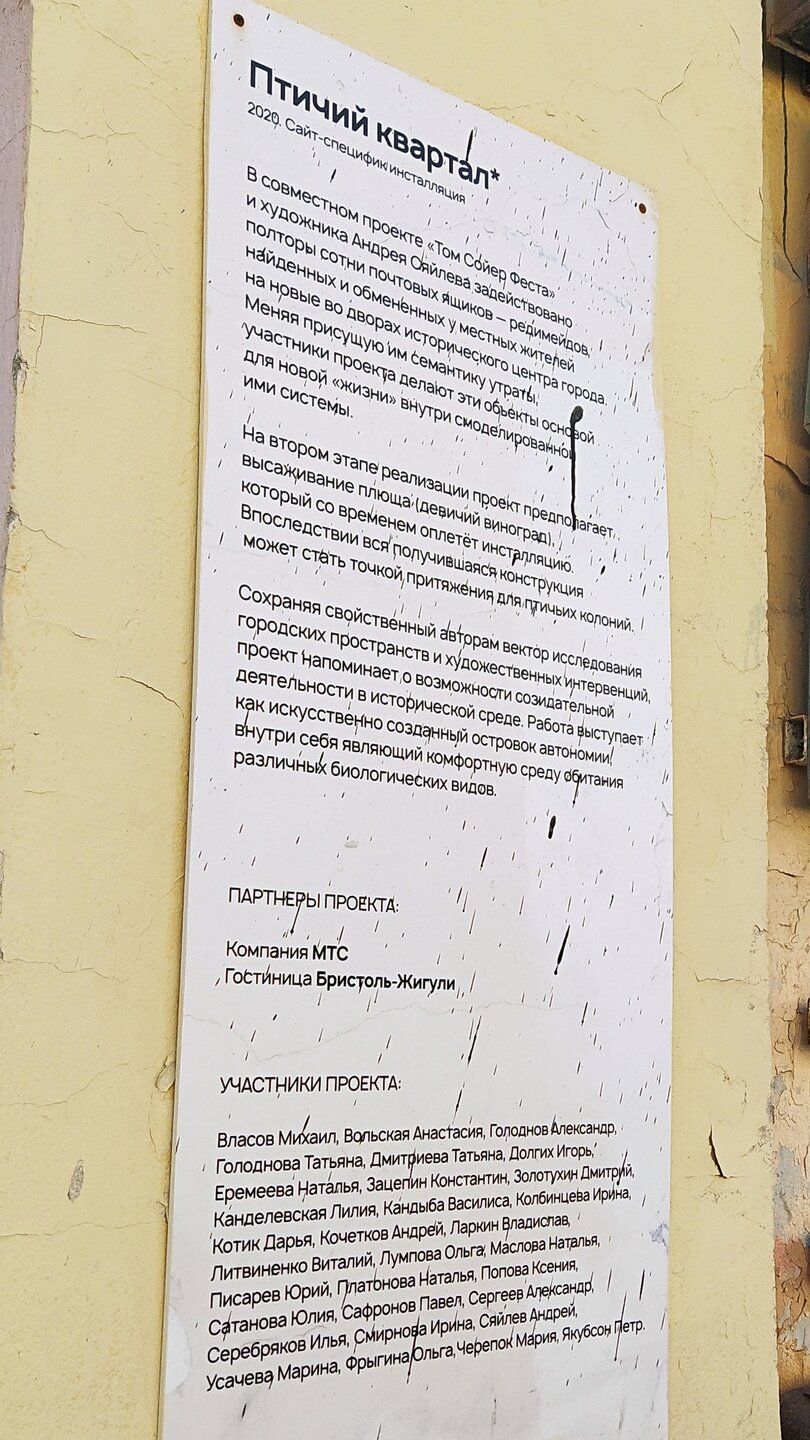 Птичий квартал*
2020. Сайт-специфик инсталляция
В совместном проекте «Том Сойер Феста»
и художника Андрея Сяйлева задействовано
полторы сотни почтовых ящиков — редимейдов,
найденных и обменённых у местных жителей
на новые во дворах исторического центра города.
Меняя присущую им семантику утраты,
участники проекта делают эти объекты основой
для новой «жизни» внутри смоделированной
ими системы.
На втором этапе реализации проект предполагает
высаживание плюща (девичий виноград),
который со временем оплетёт инсталляцию.
Впоследствии вся получившаяся конструкция
может стать точкой притяжения для птичьих колоний.
Сохраняя свойственный авторам вектор исследования
городских пространств и художественных интервенций,
проект напоминает о возможности созидательной
деятельности в исторической среде. Работа выступает
как искусственно созданный островок автономии,
внутри себя являющий комфортную среду обитания
различных биологических видов.
ПАРТНЕРЫ ПРОЕКТА:
Компания МТС
Гостиница Бристоль-Жигули
УЧАСТНИКИ ПРОЕКТА:
Власов Михаил, Вольская Анастасия, Голоднов Александр,
Голоднова Татьяна, Дмитриева Татьяна, Долгих Игорь,
Еремеева Наталья, Зацепин Константин, Золотухин Дмитрий,
Канделевская Лилия, Кандыба Василиса, Колбинцева Ирина,
Котик Дарья, Кочетков Андрей, Ларкин Владислав,
Литвиненко Виталий, Лумпова Ольга, Маслова Наталья,
Писарев Юрий, Платонова Наталья, Попова Ксения,
Сатанова Юлия, Сафронов Павел, Сергеев Александр,
Серебряков Илья, Смирнова Ирина, Сяйлев Андрей,
Усачева Марина, Фрыгина Ольга, Черепок Мария, Якубсон Петр.